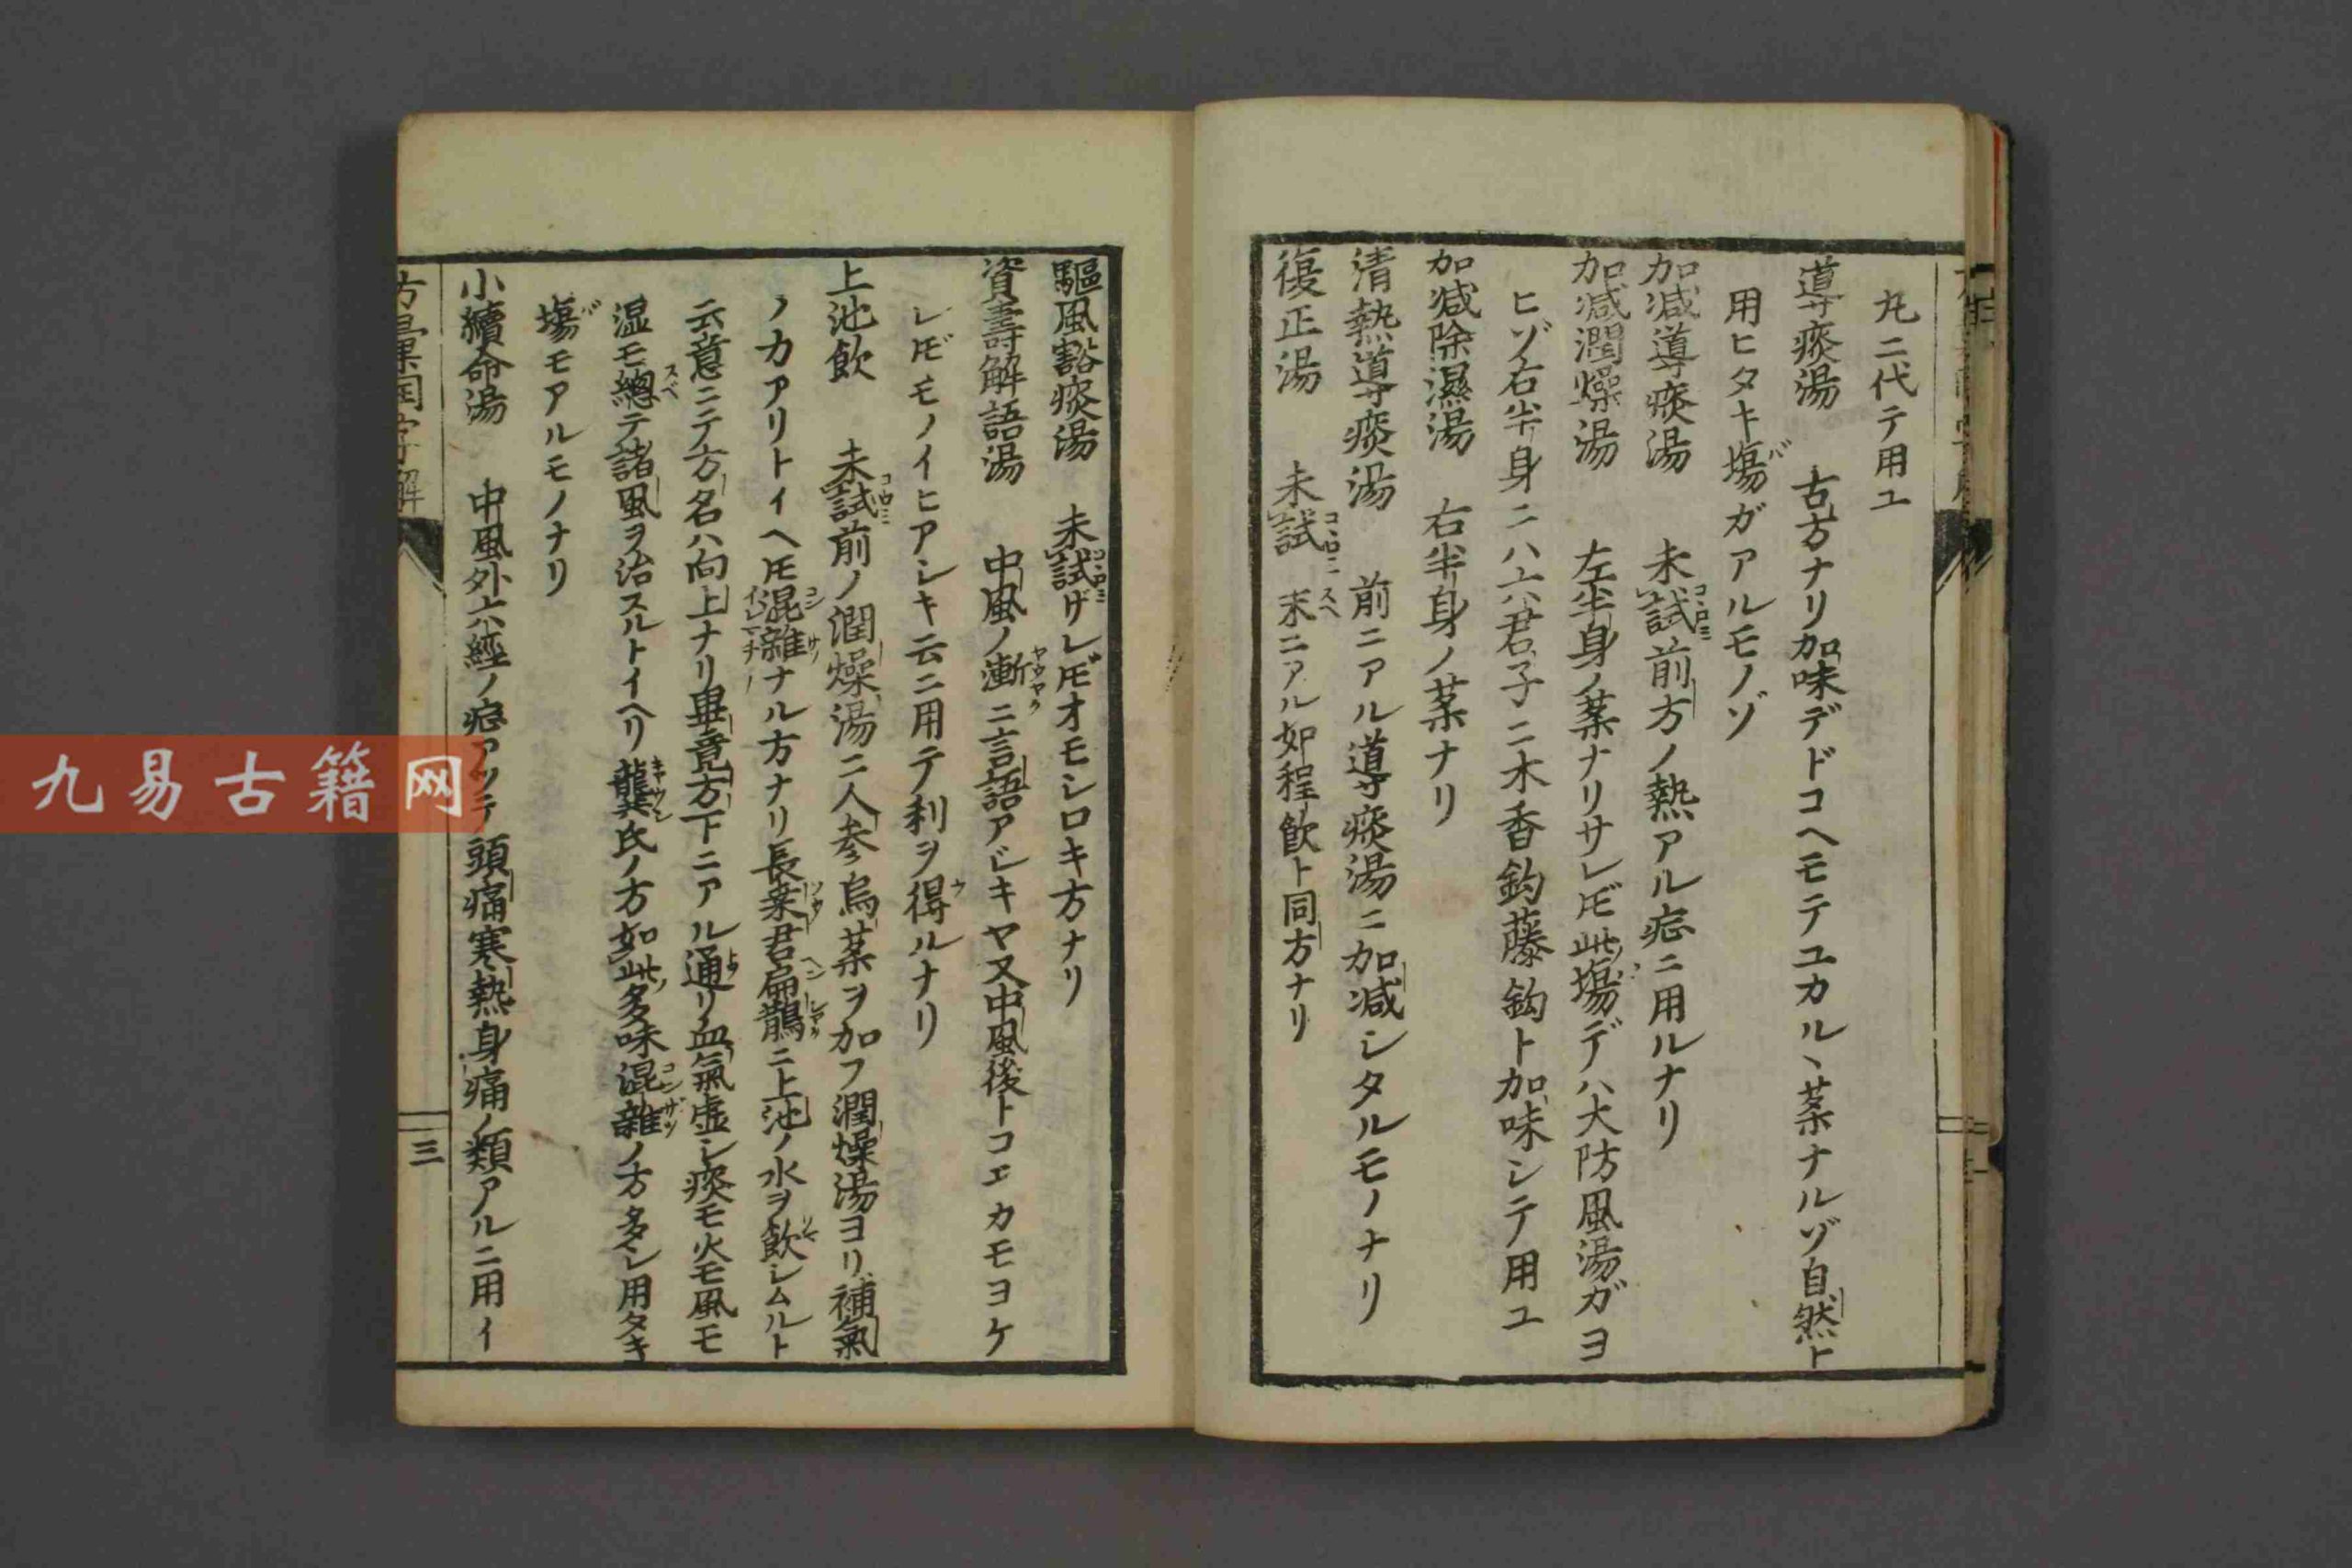 丸ニ代テ用ユ
導痰湯 古方ナリ加味デドコヘモテユカルヽ薬ナルゾ自然ト
用ヒタキ塲ガアルモノゾ
加減導痰湯 未試前方ノ熱アル症ニ用ルナリ
加減潤燥湯 左半身ノ薬ナリサレ𪜈此塲デハ大防風湯ガヨ
ヒゾ右半身ニハ六君子ニ木香釣藤鈎ト加味シテ用ユ
加減除濕湯 右半身ノ薬ナリ
清熱導痰湯 前ニアル導痰湯ニ加減シタルモノナリ
復正湯 未試 末ニアル如程飲ト同方ナリ
驅風豁痰湯 未試ザレ𪜈オモシロキ方ナリ
資壽解語湯 中風ノ漸ニ言語アシキヤ又中風後トコエカモヨケ
レ𪜈モノイヒアシキ云ニ用テ利ヲ得ルナリ
上池飲 未試前ノ潤燥湯ニ人参烏薬ヲ加フ潤燥湯ヨリ補氣
ノカアリトイヘ𪜈混雜ナル方ナリ長桒君扁鵲ニ上池ノ水ヲ飲シムルト
云意ニテ方名ハ向上ナリ畢竟方下ニアル通リ血氣虚シ痰モ火モ風モ
湿モ總テ諸風ヲ治スルトイヘリ龔氏ノ方如此多味混雜ノ方多シ用タキ
塲モアルモノナリ
小續命湯 中風外六經ノ症アツテ頭痛寒熱身痛ノ類アルニ用イ
三
九易古籍网